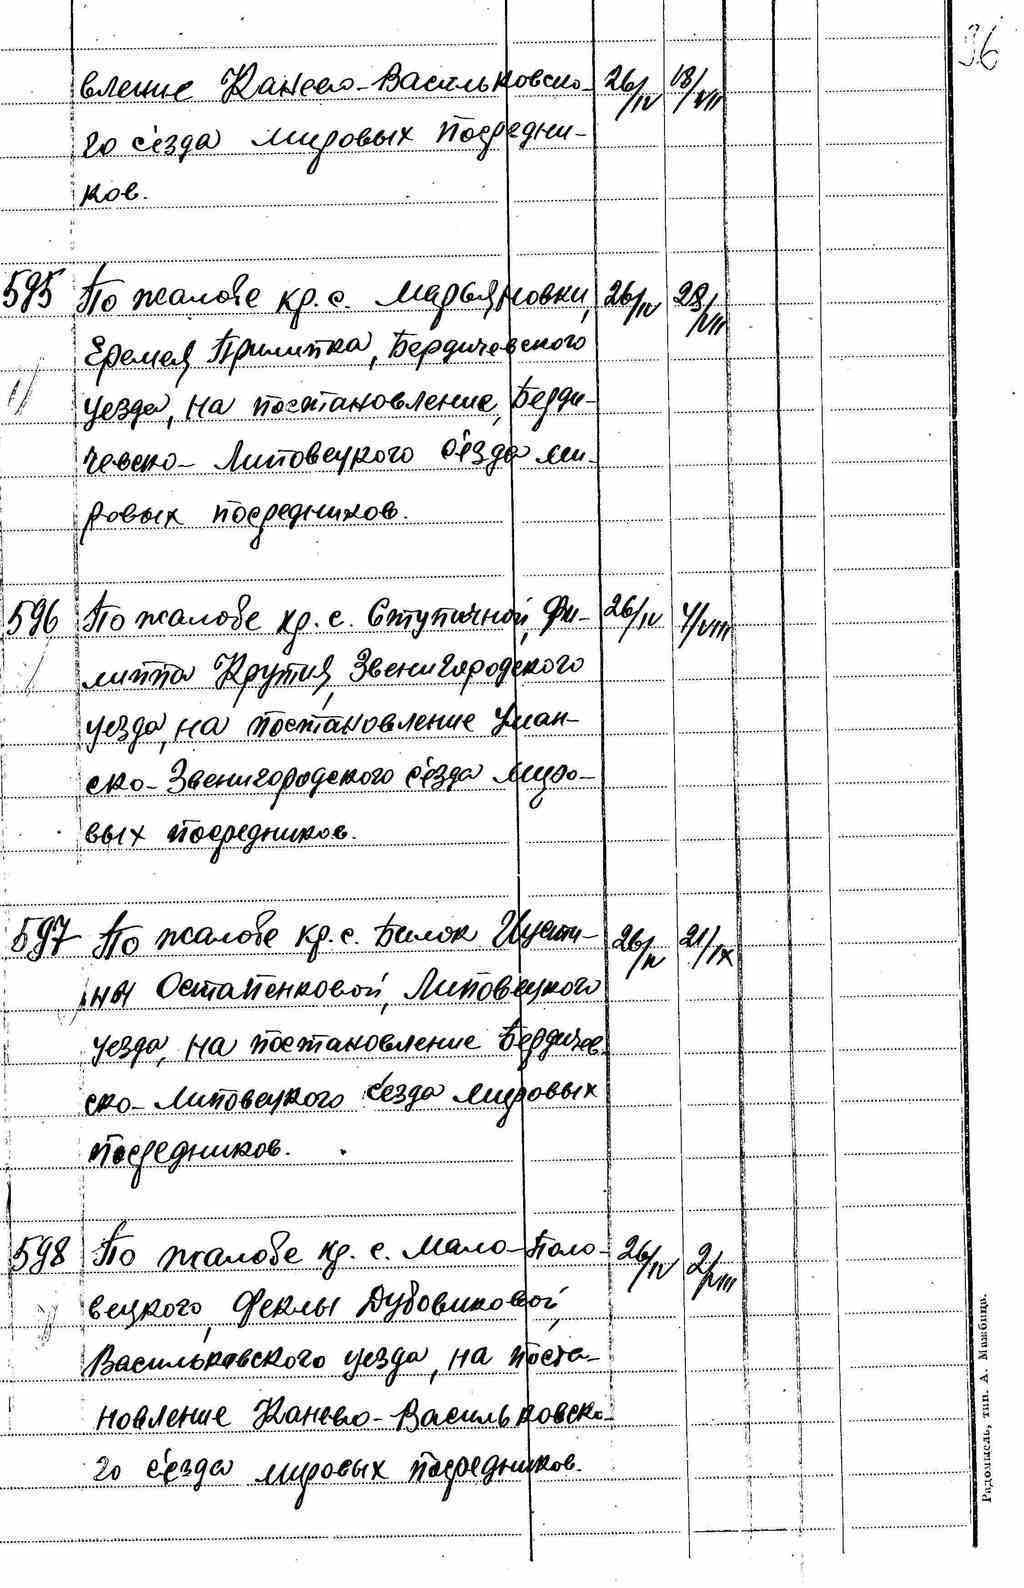 36
вление Канево-Васильковско- 26/IV 18/VIII
го с'езда мировых посредни-
ков.
595 По жалобе кр. с. Марьяновки, 26/IV 28/VIII
Еремея Прилипка, Бердичевского
уезда, на постановление, Берди-
чевско-Липовецкого с'езда ми-
ровых посредников.
596 По жалобе кр. с. Ступичной, Фи- 26/IV 4/VIII
липпа Крутия, Звенигородского
уезда, на постановление Уман-
ско-Звенигородского с'езда миро-
вых посредников.
597 По жалобе кр. с. Билок Иусти- 26/IV 21/IX
ны Остапенковой, Липовецкого
уезда, на постановление Бердичев-
ско-Липовецкого с'езда мировых
посредников.
598 По жалобе кр. с. Мало-Поло- 26/IV 2/VIII
вецкого, Феклы Дубовиковой,
Васильковского уезда, на поста-
новление Канево-Васильковско-
го с'езда мировых посредников.
Радомысль, тип. А. Мажбица.